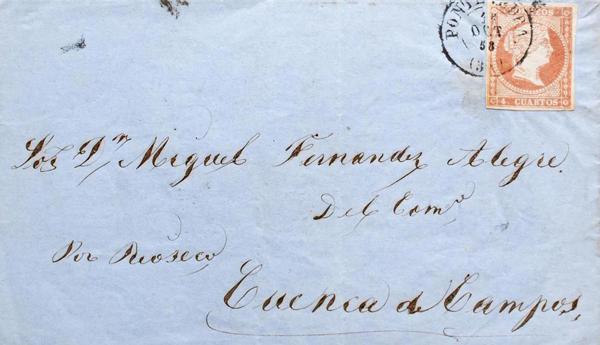 PONTEVEDRA
OCT
58
4 CUARTOS
Sor Dn Miguel Fernandez Alegre.
Del Como
Por Rioseco,
Cuenca de Campos,